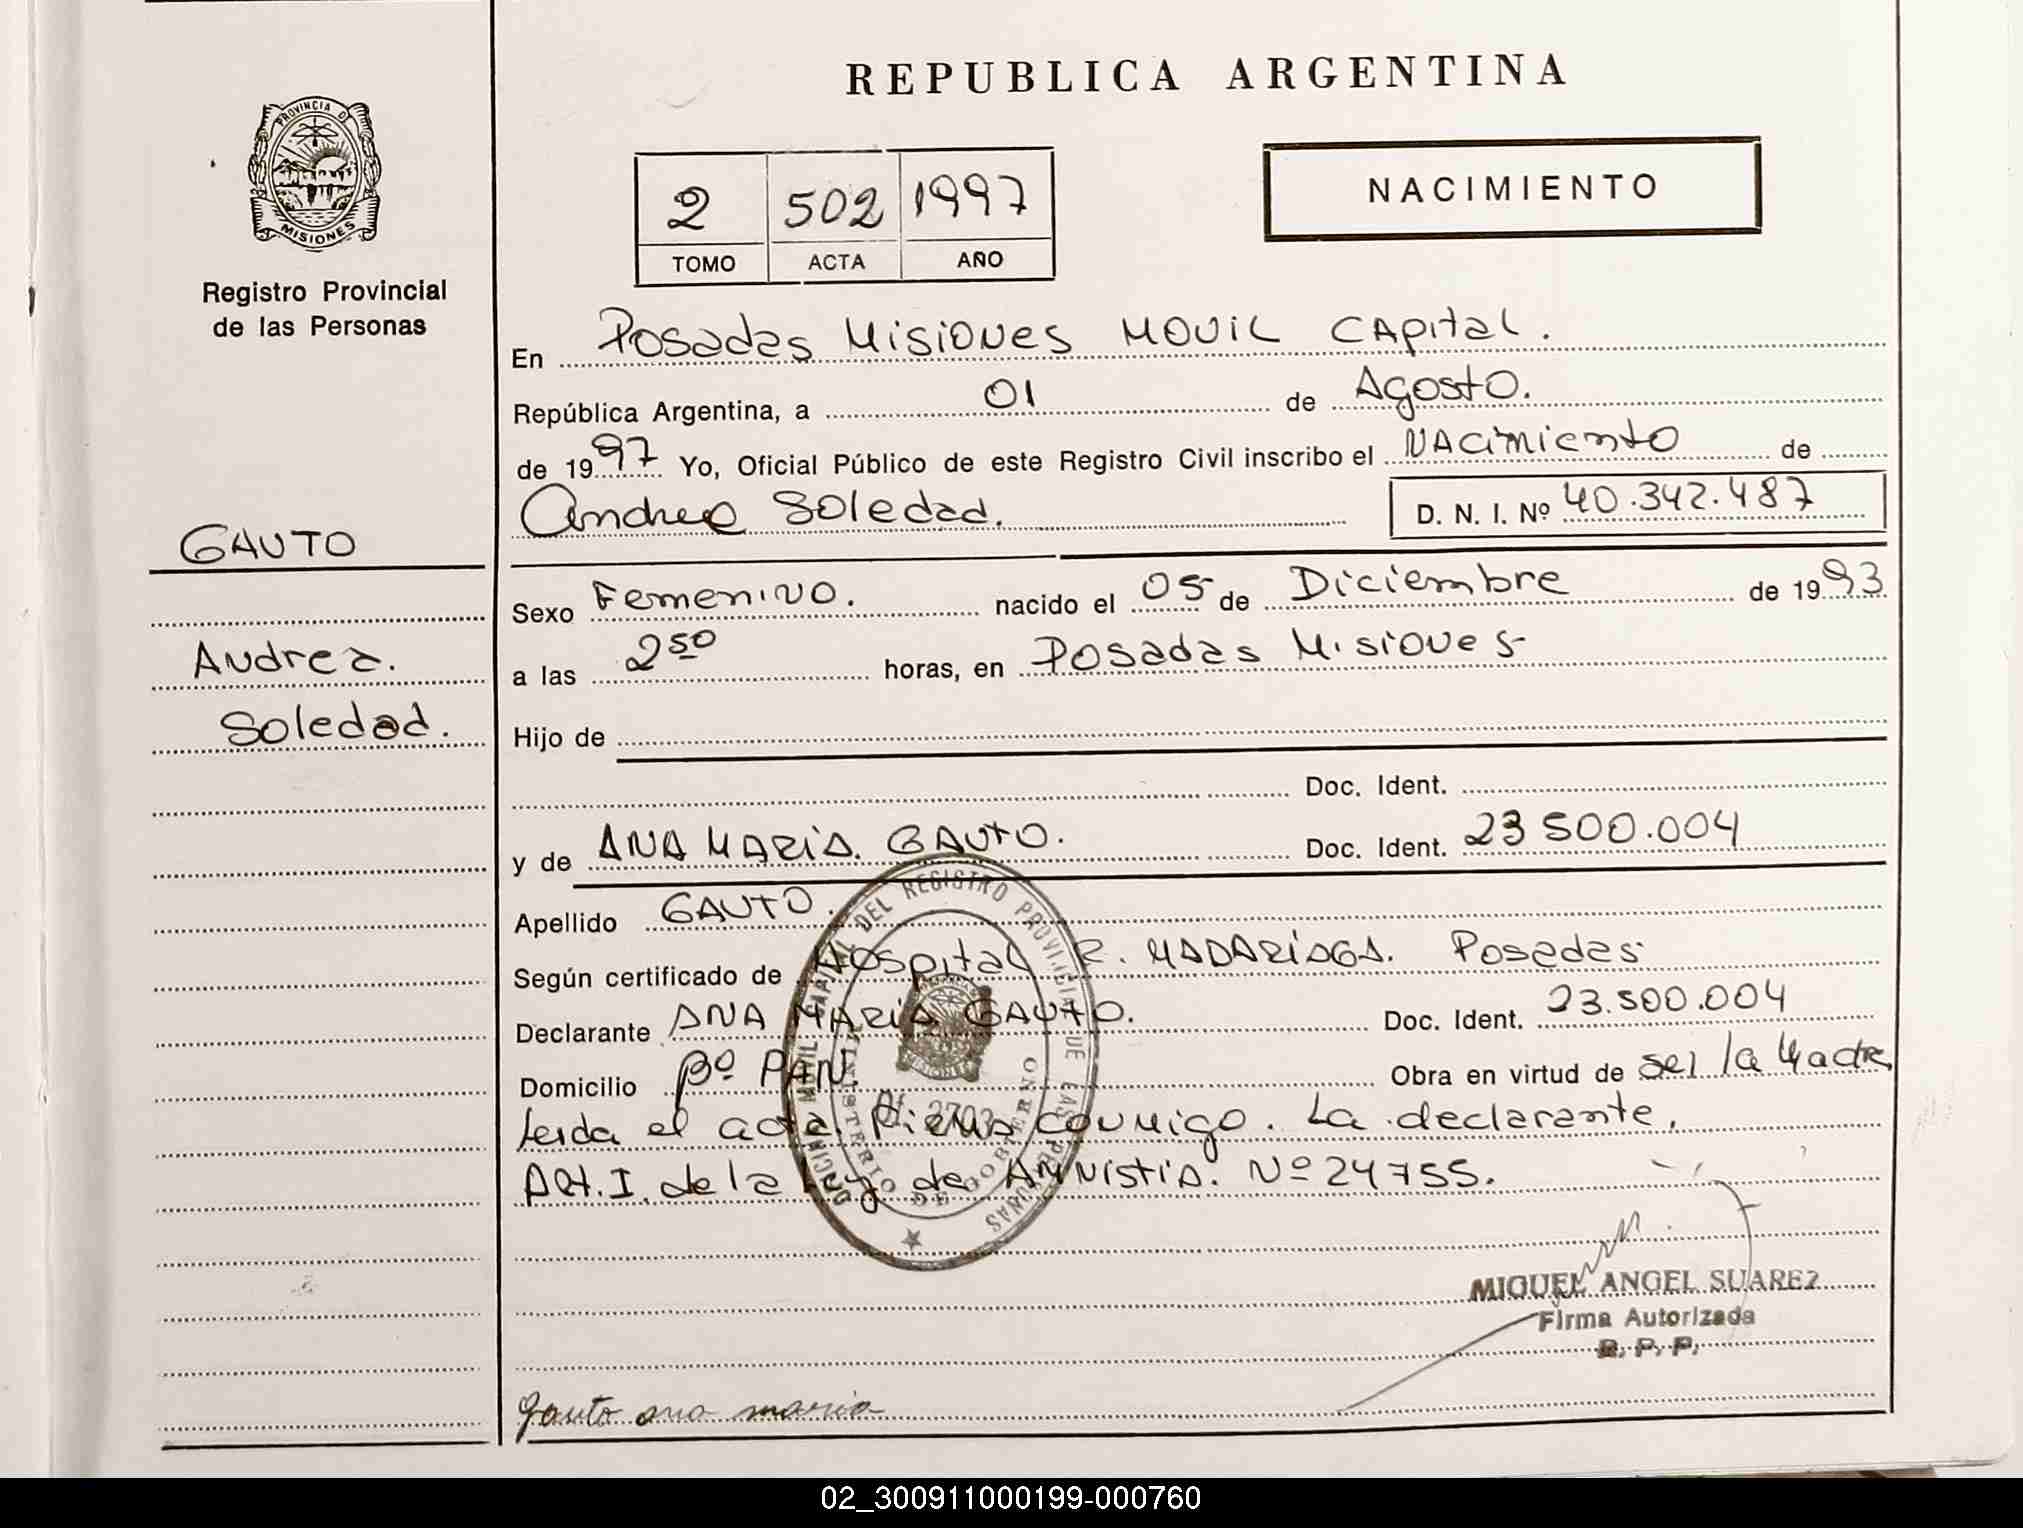 PROVINCIA DE
MISIONES
Registro Provincial
de las Personas
GAUTO
Andrea.
Soledad.
REPUBLICA ARGENTINA
2 502 1997
TOMO ACTA AÑO
NACIMIENTO
En Posadas Misiones Movil Capital.
República Argentina, a 01 de Agosto.
de 1997 Yo, Oficial Público de este Registro Civil inscribo el Nacimiento de
Andrea Soledad. D. N. I. Nº 40.342.487
Sexo Femenino. nacido el 05 de Diciembre de 1993
a las 2 50 horas, en Posadas Misiones
Hijo de
Doc. Ident.
y de ANA MARIA. GAUTO. Doc. Ident. 23 500.004
Apellido GAUTO.
Según certificado de Hospital R. MADARIAGA. Posadas
Declarante ANA MARIA GAUTO. Doc. Ident. 23.500.004
Domicilio Bº PAN. Obra en virtud de ser la Madre
Leida el acta. Firma conmigo. La declarante.
Art. I. de la Ley de Amnistia. Nº 24755.
OFICINA MOVIL CAPITAL DEL REGISTRO PROVINCIAL DE LAS PERSONAS
MINISTERIO DE GOBIERNO
MIGUEL ANGEL SUAREZ
Firma Autorizada
R. P. P.
Gauto ana maria
02_300911000199-000760